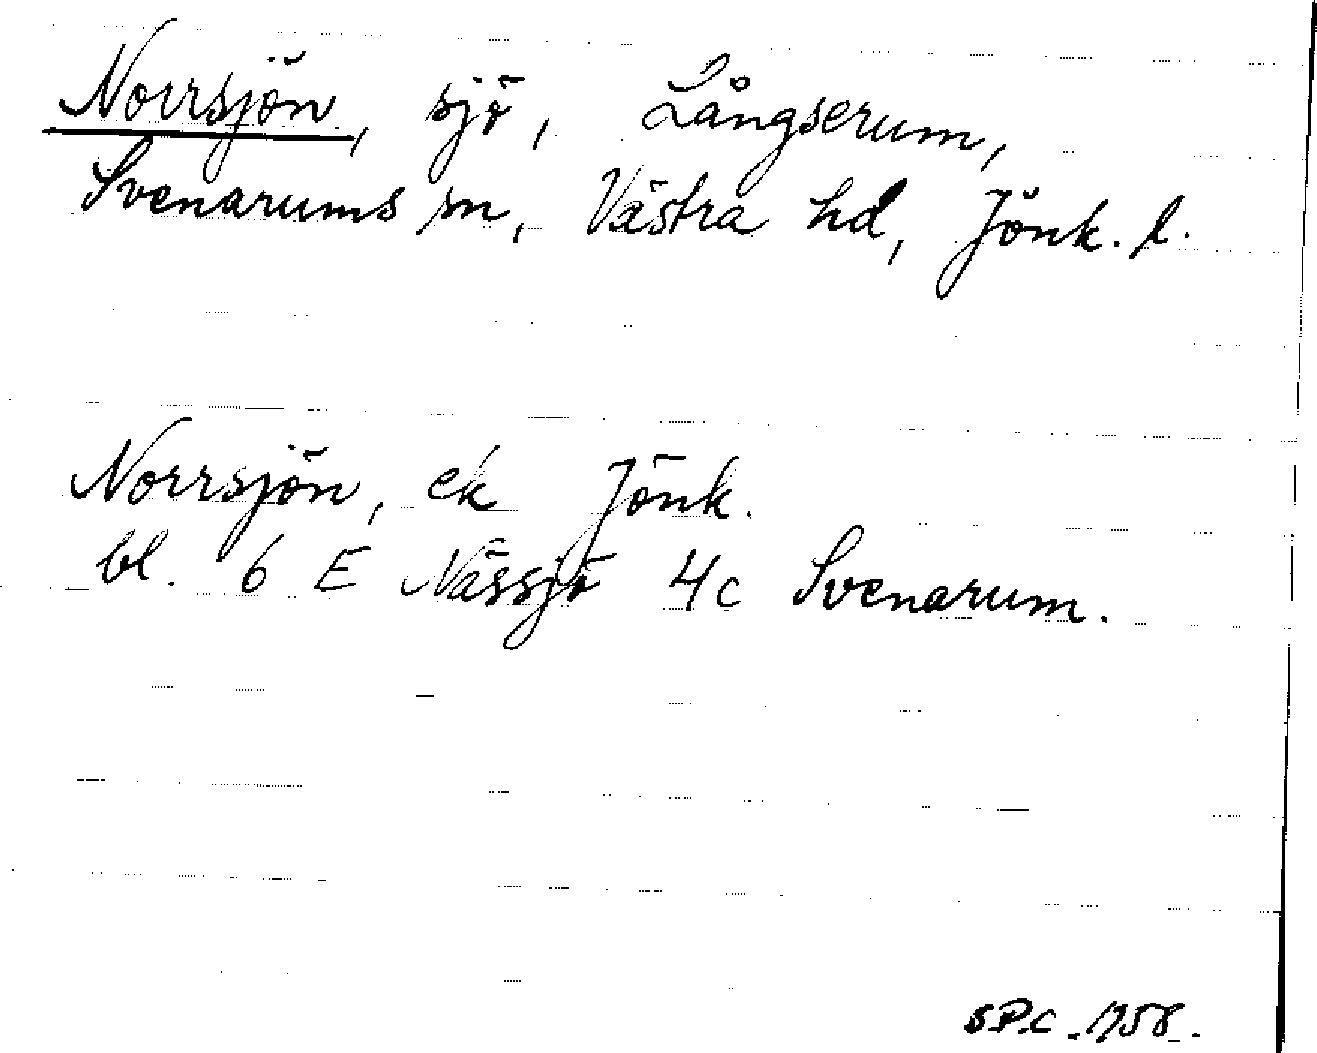 Norrsjön, sjö, Långserum,
Svenarums sn, Västra hd, Jönk. l.
Norrsjön, ek Jönk.
bl. 6 E Nässjö 4c Svenarum.
S.P.C. 1958.